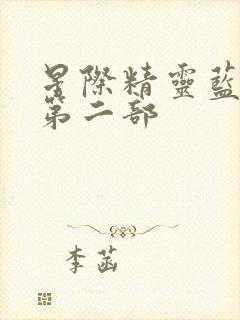 星際精靈藍
第二部
李菡